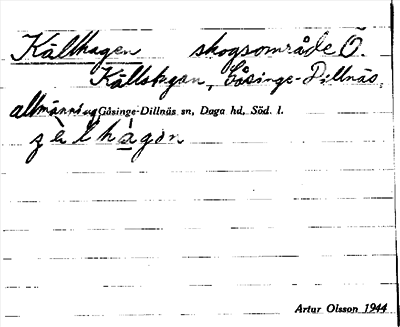 Källhagen skogsområde Ö.
Källstugan, Gåsinge-Dillnäs,
allmänning Gåsinge-Dillnäs sn, Daga hd, Söd. l.
Artur Olsson 1944